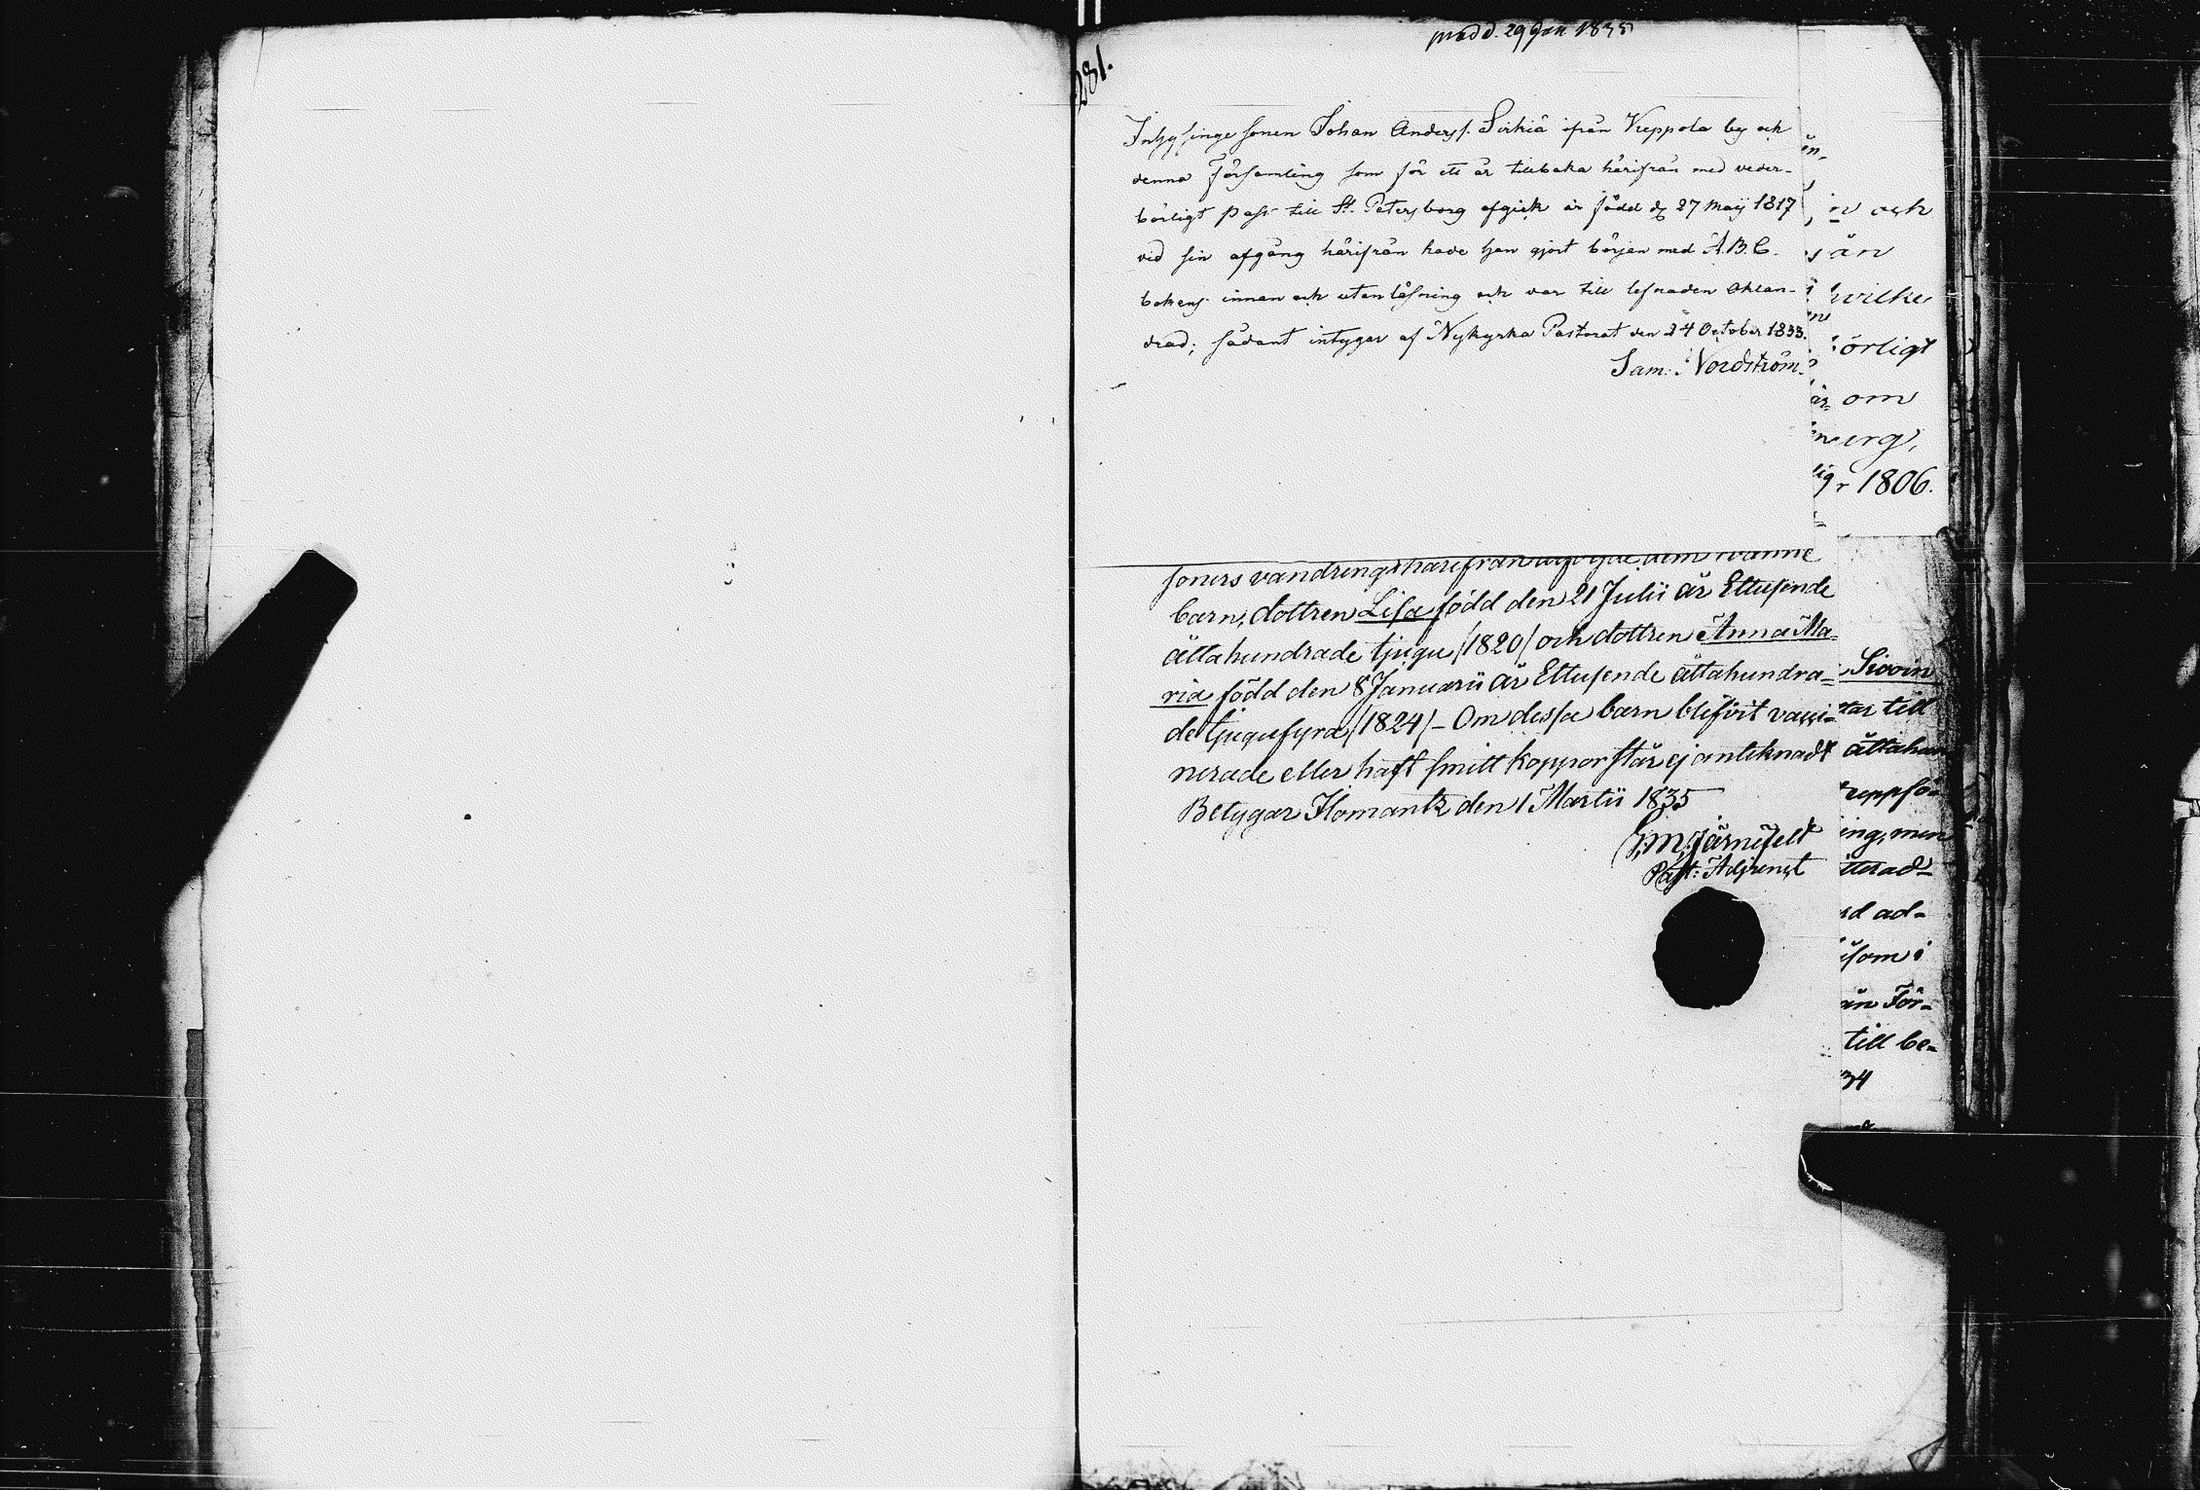 prod d. 29 Jan 1835
281.
Inhysinge sonen Johan Anderss. Sirkiä ifrån Kuppola by och
denna Församling som för ett år tillbaka härifrån med veder-
börligt pass till St. Petersborg afgick är född d. 27 Maij 1817
vid sin afgång härifrån hade han gjort början med A.B.C.
bokens innan och utan läsning och var till lefnaden oklan-
drad; sådant intygar af Nykyrka Pastorat den 24 October 1833.
Sam: Nordström.
och
än
hvilke
örligt
om
urg,
1806.
soners vandring härifrån
barn, dottren Lisa född den 21 Julii år Ettusende
åttahundrade tjugu /1820/ och dottren Anna Ma-
ria född den 8 Januarii år Ettusende åttahundra-
de tjugufyra /1824/ - Om dessa barn blifvit vacci-
nerade eller haft smitt koppor står ej anteknadt
Betygar Ilomantz den 1 Martii 1835
G. M. Järnefelt
Past: Adjunct
Sivoin
tar till
åttahun
uppfö-
ing, men
tterad-
rd ad-
som i
ån För-
till be-
34